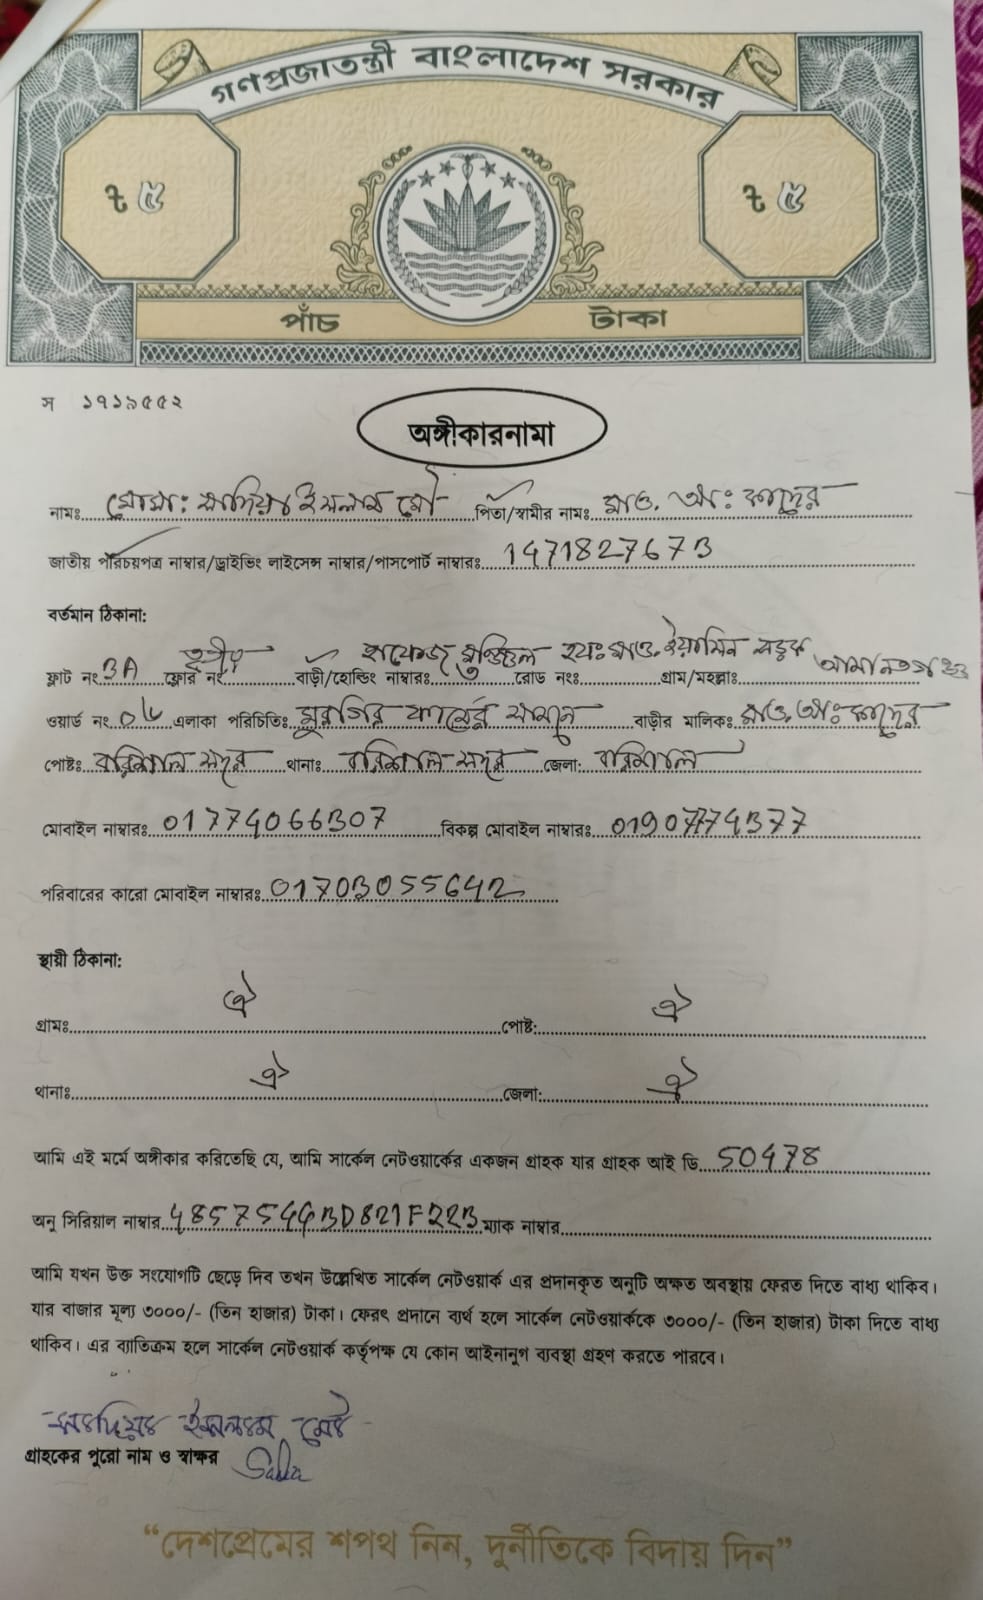 গণপ্রজাতন্ত্রী বাংলাদেশ সরকার
৳ ৫ ৳ ৫
পাঁচ টাকা
স ১৭১৯৫৫২
অঙ্গীকারনামা
নামঃ মোসা: সাদিয়া ইসলাম মৌ পিতা/স্বামীর নামঃ মাও. আঃ কাদের
জাতীয় পরিচয়পত্র নাম্বার/ড্রাইভিং লাইসেন্স নাম্বার/পাসপোর্ট নাম্বারঃ 1471827673
বর্তমান ঠিকানা:
ফ্লাট নং 3A ফ্লোর নং তৃতীয় বাড়ী/হোল্ডিং নাম্বারঃ হাফেজ মঞ্জিল রোড নংঃ হযঃ মাও. ইয়াসিন সড়ক গ্রাম/মহল্লাঃ আমানতগঞ্জ
ওয়ার্ড নং ০৬ এলাকা পরিচিতিঃ মুরগির ফার্মের সামনে বাড়ীর মালিকঃ মাও. আঃ কাদের
পোষ্টঃ বরিশাল সদর থানাঃ বরিশাল সদর জেলা: বরিশাল
মোবাইল নাম্বারঃ 01774066307 বিকল্প মোবাইল নাম্বারঃ 01907774377
পরিবারের কারো মোবাইল নাম্বারঃ 01703055642
স্থায়ী ঠিকানা:
গ্রামঃ ঐ পোষ্ট: ঐ
থানাঃ ঐ জেলা: ঐ
আমি এই মর্মে অঙ্গীকার করিতেছি যে, আমি সার্কেল নেটওয়ার্কের একজন গ্রাহক যার গ্রাহক আই ডি 50478
অনু সিরিয়াল নাম্বার 485754GBD821F22B ম্যাক নাম্বার
আমি যখন উক্ত সংযোগটি ছেড়ে দিব তখন উল্লেখিত সার্কেল নেটওয়ার্ক এর প্রদানকৃত অনুটি অক্ষত অবস্থায় ফেরত দিতে বাধ্য থাকিব।
যার বাজার মূল্য ৩০০০/- (তিন হাজার) টাকা। ফেরৎ প্রদানে ব্যর্থ হলে সার্কেল নেটওয়ার্ককে ৩০০০/- (তিন হাজার) টাকা দিতে বাধ্য
থাকিব। এর ব্যাতিক্রম হলে সার্কেল নেটওয়ার্ক কর্তৃপক্ষ যে কোন আইনানুগ ব্যবস্থা গ্রহণ করতে পারবে।
সাদিয়া ইসলাম মৌ
গ্রাহকের পুরো নাম ও স্বাক্ষর
“দেশপ্রেমের শপথ নিন, দুর্নীতিকে বিদায় দিন”